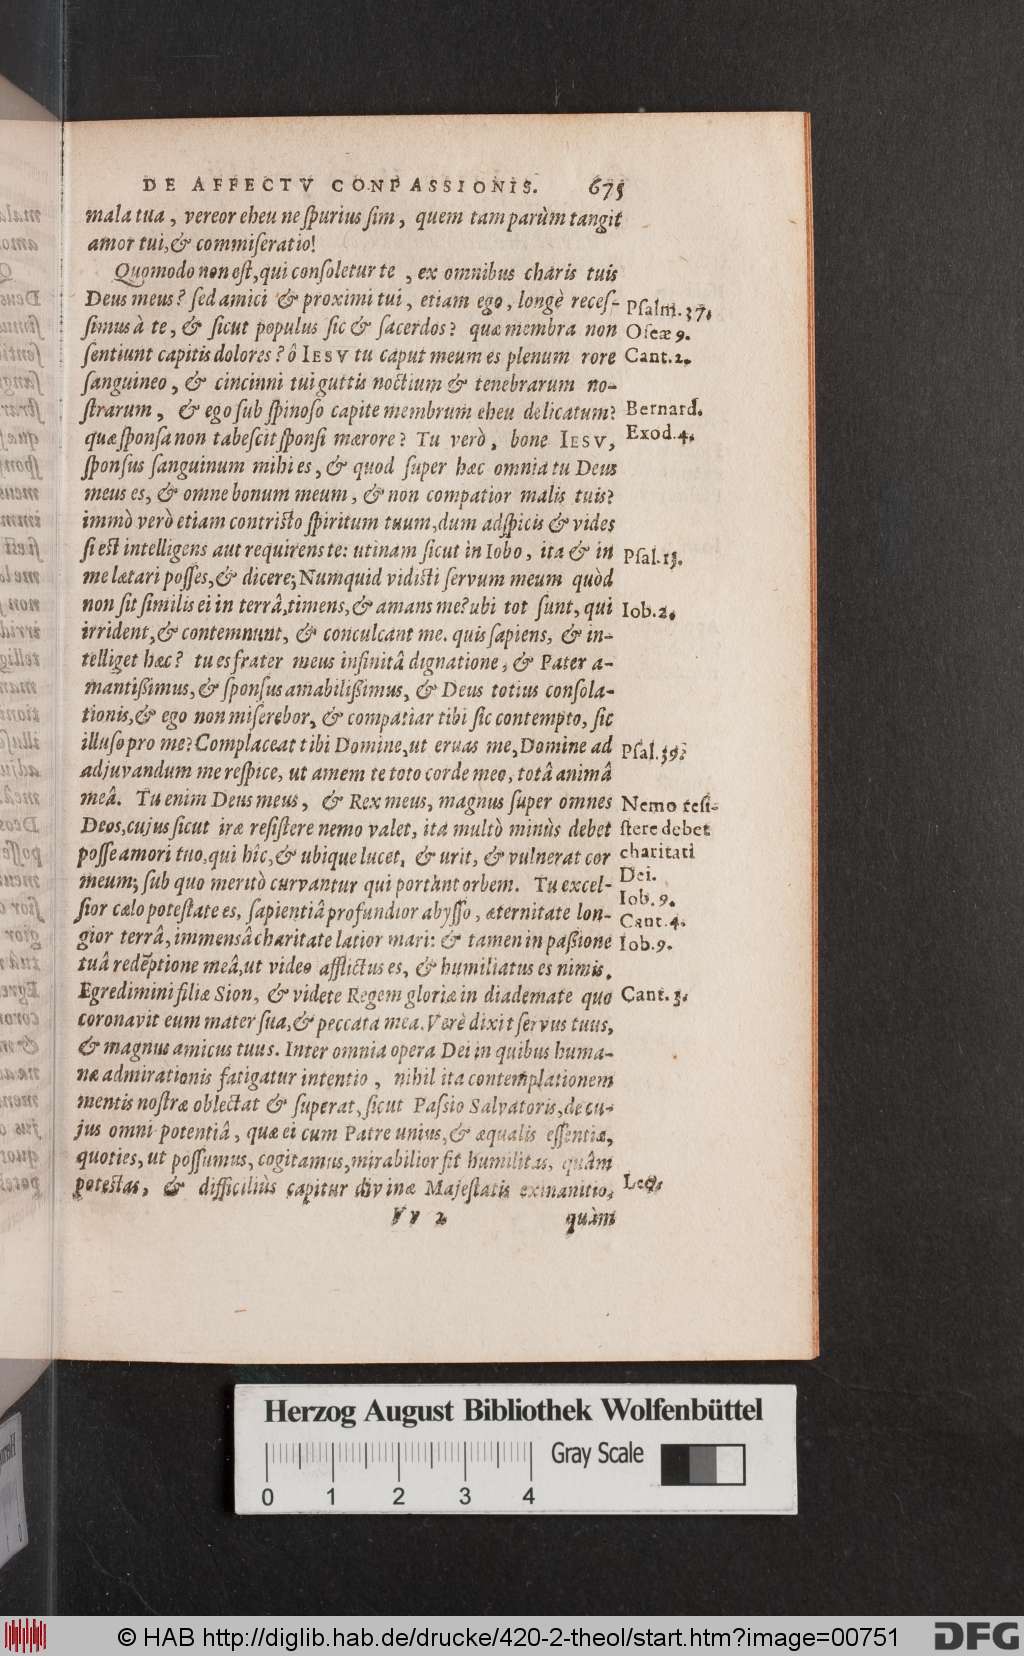 DE AFFECTV CONPASSIONIS. 675
mala tua, vereor eheu ne spurius sim, quem tam parùm tangit
amor tui, & commiseratio!
Quomodo non est, qui consoletur te, ex omnibus charis tuis
Deus meus? sed amici & proximi tui, etiam ego, longè reces-
simus à te, & sicut populus sic & sacerdos? quæ membra non
sentiunt capitis dolores? ô IESV tu caput meum es plenum rore
sanguineo, & cincinni tui guttis noctium & tenebrarum no-
strarum, & ego sub spinoso capite membrum eheu delicatum?
quæ sponsa non tabescit sponsi mærore? Tu verò, bone IESV,
sponsus sanguinum mihi es, & quod super hæc omnia tu Deus
meus es, & omne bonum meum, & non compatior malis tuis?
immò verò etiam contristo spiritum tuum, dum adspicis & vides
si est intelligens aut requirens te: utinam sicut in Iobo, ita & in
me lætari posses, & dicere; Numquid vidisti servum meum quòd
non sit similis ei in terrâ, timens, & amans me? ubi tot sunt, qui
irrident, & contemnunt, & conculcant me. quis sapiens, & in-
telliget hæc? tu es frater meus infinitâ dignatione, & Pater a-
mantißimus, & sponsus amabilißimus, & Deus totius consola-
tionis, & ego non miserebor, & compatiar tibi sic contempto, sic
illuso pro me? Complaceat tibi Domine, ut eruas me, Domine ad
adjuvandum me respice, ut amem te toto corde meo, totâ animâ
meâ. Tu enim Deus meus, & Rex meus, magnus super omnes
Deos, cujus sicut iræ resistere nemo valet, ita multò minùs debet
posse amori tuo, qui hîc, & ubique lucet, & urit, & vulnerat cor
meum; sub quo meritò curvantur qui portant orbem. Tu excel-
sior cælo potestate es, sapientiâ profundior abysso, æternitate lon-
gior terrâ, immensâ charitate latior mari: & tamen in paßione
tuâ redẽptione meâ, ut video afflictus es, & humiliatus es nimis.
Egredimini filiæ Sion, & videte Regem gloriæ in diademate quo
coronavit eum mater sua, & peccata mea. Verè dixit servus tuus,
& magnus amicus tuus. Inter omnia opera Dei in quibus huma-
næ admirationis fatigatur intentio, nihil ita contemplationem
mentis nostræ oblectat & superat, sicut Passio Salvatoris, de cu-
jus omnipotentiâ, quæ ei cum Patre unius, & æqualis essentiæ,
quoties, ut possumus, cogitamus, mirabilior fit humilitas, quâm
potestas, & difficiliùs capitur divinæ Majestatis exinanitio,
Vv 2 quàm
Psalm. 37.
Oseæ 9.
Cant. 2.
Bernard.
Exod. 4.
Psal. 13.
Iob. 2.
Psal. 39.
Nemo resi-
stere debet
charitati
Dei.
Iob. 9.
Cant. 4.
Iob. 9.
Cant. 3.
Leo.
Herzog August Bibliothek Wolfenbüttel
Gray Scale
0 1 2 3 4
© HAB http://diglib.hab.de/drucke/420-2-theol/start.htm?image=00751
DFG